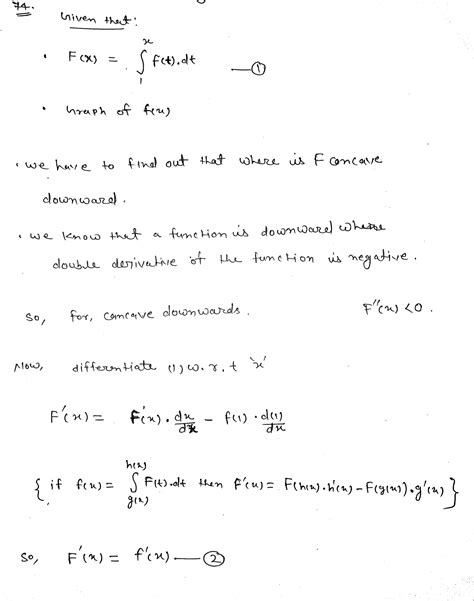 74.
Given that:
• F(x) = ∫₁ˣ f(t).dt —①
• Graph of f(x)
• we have to find out that where is F concave
downward.
• we know that a function is downward where
double derivative of the function is negative.
so, for, concave downwards. F''(x) < 0.
Now, differentiate (1) w.r.t 'x'
F'(x) = F'(x) . dx/dx − f(1) . d(1)/dx
{ if f(x) = ∫_{g(x)}^{h(x)} F(t).dt then F'(x) = F(h(x).h'(x) − F(g(x)).g'(x) }
so, F'(x) = f'(x) —②